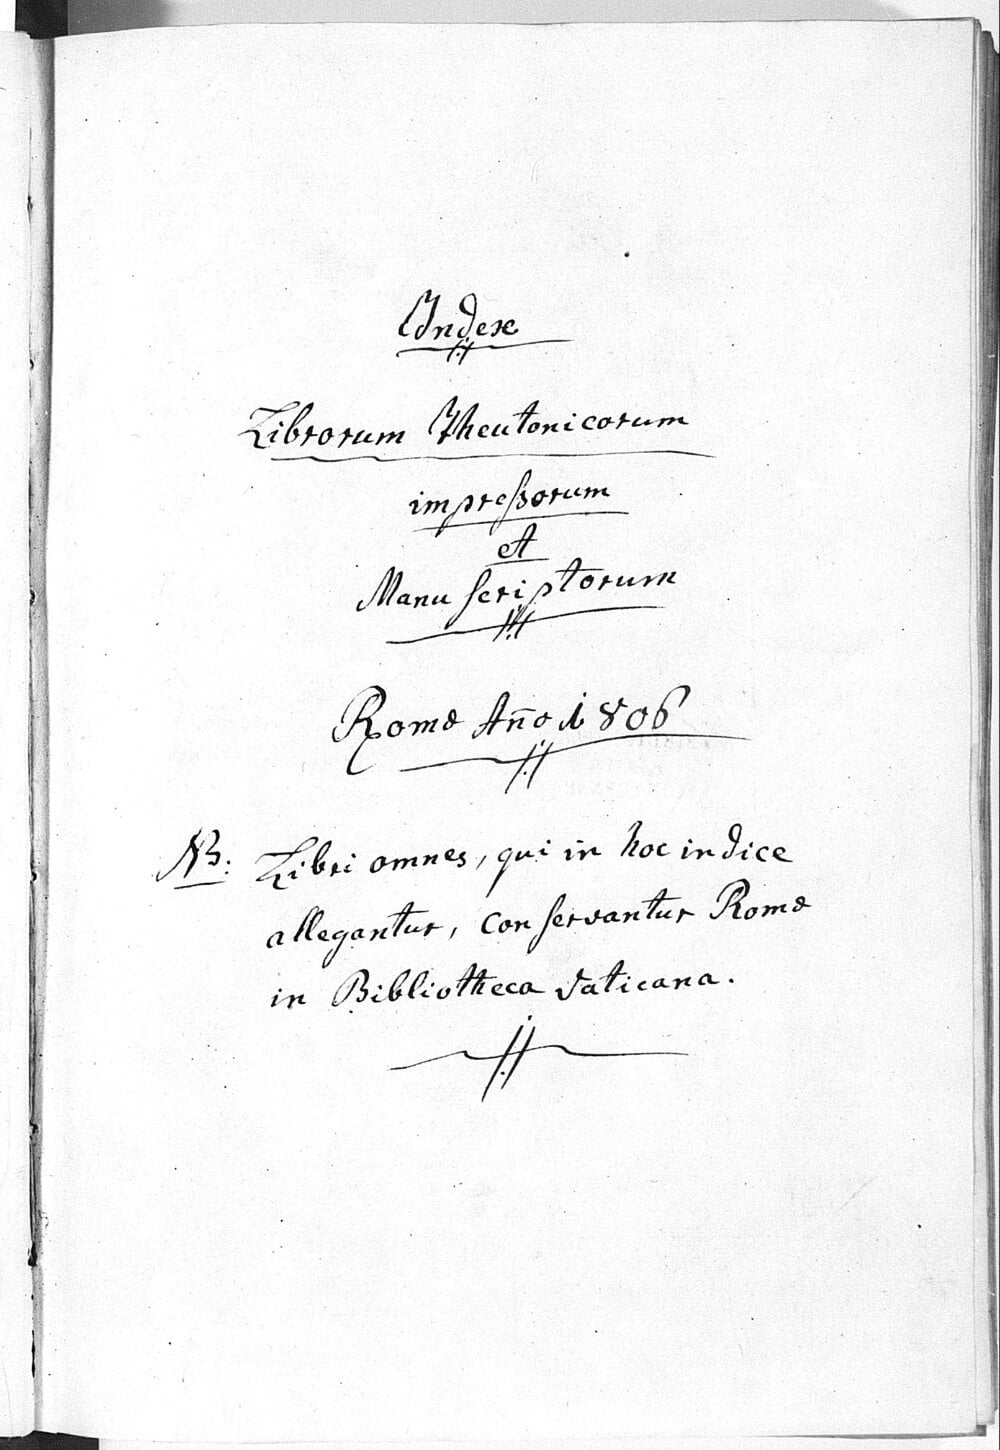 Index
Librorum Theutonicorum
impreſsorum
et
Manuſcriptorum
Romæ Año 1806
NB: Libri omnes, qui in hoc indice
allegantur, conſervantur Romæ
in Bibliotheca Vaticana.